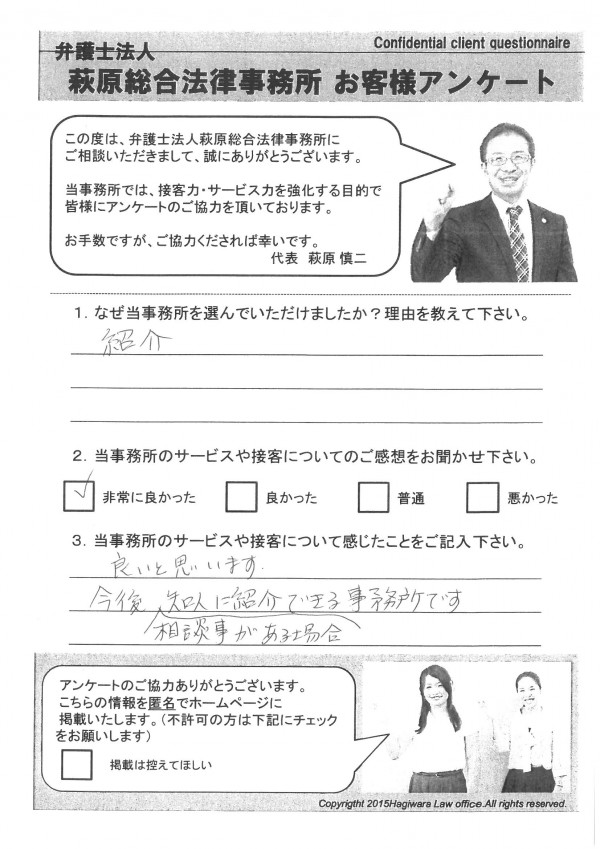 Confidential client questionnaire
弁護士法人
萩原総合法律事務所 お客様アンケート
この度は、弁護士法人萩原総合法律事務所に
ご相談いただきまして、誠にありがとうございます。
当事務所では、接客力・サービス力を強化する目的で
皆様にアンケートのご協力を頂いております。
お手数ですが、ご協力くだされば幸いです。
代表 萩原 慎二
1．なぜ当事務所を選んでいただけましたか？理由を教えて下さい。
紹介
2．当事務所のサービスや接客についてのご感想をお聞かせ下さい。
非常に良かった 良かった 普通 悪かった
3．当事務所のサービスや接客について感じたことをご記入下さい。
良いと思います.
今後、知人に紹介できる事務所です
相談事がある場合
アンケートのご協力ありがとうございます。
こちらの情報を匿名でホームページに
掲載いたします。（不許可の方は下記にチェック
をお願いします）
掲載は控えてほしい
Copyrigtht 2015Hagiwara Law office.All rights reserved.